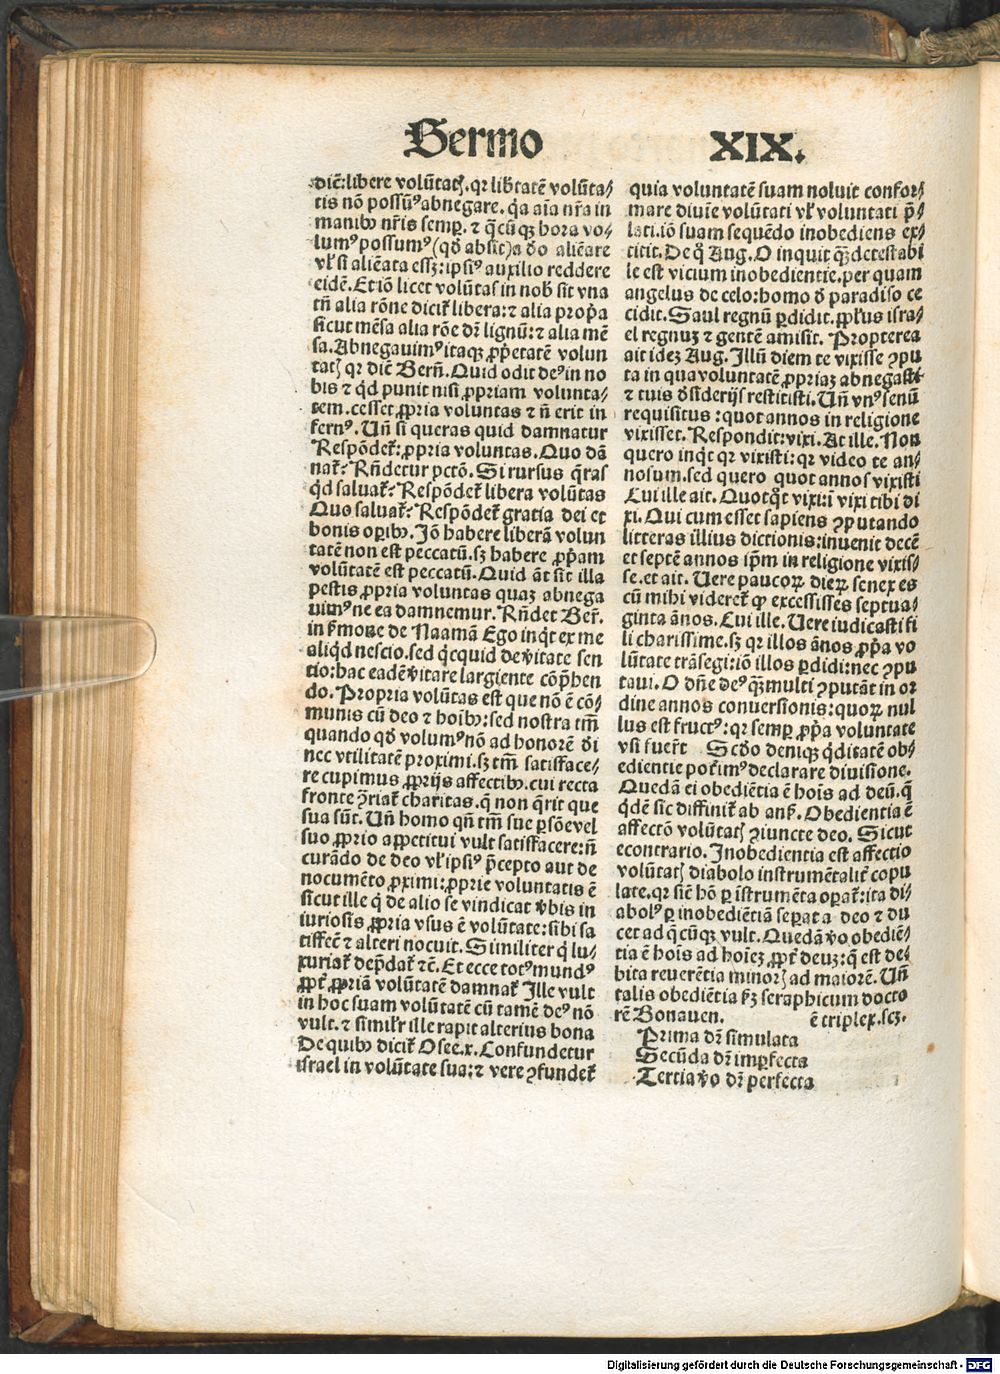 Sermo XIX.
dicẽ: libere volũtatꝭ. qꝛ libertatẽ volũta⸗
tis nõ possumꝰ abnegare. q̃a aĩa nr̃a in
manibꝰ nr̃is semꝑ. ⁊ q̃cũqꝫ hora vo⸗
lumꝰ possumꝰ (qđ absit) a deo alieare
vl̕ si alieata essꝫ: ipsiꝰ auxilio reddere
eidẽ. Et iõ licet volũtas in nobis sit vna
tñ alia rõne dicit̃ libera: ⁊ alia prop̃a
sicut mẽsa alia rõe dr̃ lignũ: ⁊ alia mẽ
sa. Abnegauimꝰ itaqꝫ ꝓp̃etatẽ volun
tatꝭ qꝛ dicẽ Berñ. Quid odit deꝰ in no
bis ⁊ qđ punit nisi ꝓpriam volunta⸗
tem. cesset ꝓpria voluntas ⁊ ñ erit in
fernꝰ. Uñ si queras quid damnatur
Respõdet̃: ꝓpria voluntas. Quo dã
nat̃? Rñdetur pctõ. Si rursus q̃ras
qđ saluat̃? Respõdet̃ libera volũtas
Quo saluat̃? Respõdet̃ gratia dei et
bonis oꝑibꝰ. Iõ habere liberã volun
tatẽ non est peccatũ. sꝫ habere ꝓp̃am
volũtatẽ est peccatũ. Quid ãt sit illa
pestis ꝓpria voluntas quaꝫ abnega
uimꝰ ne ea damnemur. Rñdet Ber̃.
in ẜmone de Naamã Ego inq̃t ex me
aliqđ nescio. sed q̃cquid de v̕itate sen
tio: hac eadẽ v̕itate largiente cõp̃hen
do. Propria volũtas est que nõ ẽ cõ⸗
munis cũ deo ⁊ hoĩbꝰ: sed nostra tm̃
quando qđ volumꝰ nõ ad honorẽ dei
nec vtilitatẽ proximi. sꝫ tm̃ satisface⸗
re cupimus ꝓprijs affectibꝰ. cui recta
fronte ꝯ̃riat̃ charitas. q̃ non q̃rit que
sua sũt. Uñ homo qñ tm̃ sue ꝑsõe vel
suo ꝓprio appetitui vult satisfacere: ñ
curãdo de deo vl̕ ipsiꝰ p̃cepto aut de
nocumẽto ꝓximi: ꝓprie voluntatis ẽ
sicut ille q̃ de alio se vindicat v̕bis in
iuriosis ꝓpria vsus ẽ volũtate: sibi sa
tisfecẽ ⁊ alteri nocuit. Similiter q̃ lu⸗
xuriat̃ dep̃dat̃ ⁊c̃. Et ecce totꝰ mundꝰ
ꝓpt̃ ꝓpriã volũtatẽ damnat̃ Ille vult
in hoc suam volũtatẽ cũ tamẽ deꝰ nõ
vult. ⁊ simil̕r ille rapit alterius bona
De quibꝰ dicit̃ Osee. x. Confundetur
israel in volũtate sua: ⁊ vere ꝯfundet̃
quia voluntatẽ suam noluit confor⸗
mare diuĩe volũtati vl̕ voluntati p̃⸗
lati. iõ suam sequẽdo inobediens ex⸗
titit. De q̃ Aug. O inquit q̃ꝫ detestabi
le est vicium inobedientie. per quam
angelus de celo: homo đ paradiso ce
cidit. Saul regnũ ꝑdidit. ꝓpl̕us isra⸗
el regnuꝫ ⁊ gentẽ amisit. Propterea
ait ideꝫ Aug. Illũ diem te vixisse ꝯpu
ta in qua voluntatẽ ꝓpriaꝫ abnegasti
⁊ tuis đsiderijs restitisti. Uñ vnꝰ senũ
requisitus: quot annos in religione
vixisset. Respondit: vixi. At ille. Non
quero inq̃t qꝛ vixisti: qꝛ video te an⸗
nosum. sed quero quot annos vixisti
Cui ille ait. Quotq̃t vixi: ĩ vixi tibi di
xi. Qui cum esset sapiens ꝯputando
litteras illius dictionis: inuenit decẽ
et septẽ annos ip̃m in religione vixis⸗
se. et ait. Uere paucoꝝ dieꝝ senex es
cũ mihi videret̃ ꝙ excessisses septua⸗
ginta ãnos. Cui ille. Uere iudicasti fi
li charissime. sꝫ qꝛ illos ãnos ꝓp̃a vo
lũtate trãsegi: iõ illos ꝑdidi: nec ꝯpu
taui. O dñe deꝰ q̃ꝫ multi ꝯputãt in or
dine annos conuersionis: quoꝝ nul
lus est fructꝰ: qꝛ semꝑ ꝓp̃a voluntate
vsi fuer̃t Scđo deniqꝫ q̃ditatẽ ob⸗
edientie pot̃imꝰ declarare diuisione.
Quedã ei obediẽtia ẽ hoĩs ad deũ. q̃
q̃dẽ sic diffinit̃ ab anẜ. Obedientia ẽ
affectõ volũtatꝭ ꝯiuncte deo. Sicut
econtrario. Inobedientia est affectio
volũtatꝭ diabolo instrumẽtalit̃ copu
late. qꝛ sicẽ hõ ꝑ ĩstrumẽta oꝑat̃: ita di⸗
abolꝰ ꝑ inobediẽtiã seꝑat a deo ⁊ du
cet ad q̃cũqꝫ vult. Quedã v̕o obediẽ⸗
tia ẽ hoĩs ad hoĩeꝫ ꝓpt̃ deuꝫ: q̃ est de⸗
bita reuerẽtia minoꝝ ad maiorẽ. Uñ
talis obediẽtia ẜꝫ seraphicum docto
rẽ Bonauen. ẽ triplex. scꝫ.
Prima dr̃ simulata
Secũda dr̃ imꝑfecta
Tertia v̕o dr̃ perfecta
Digitalisierung gefördert durch die Deutsche Forschungsgemeinschaft - DFG